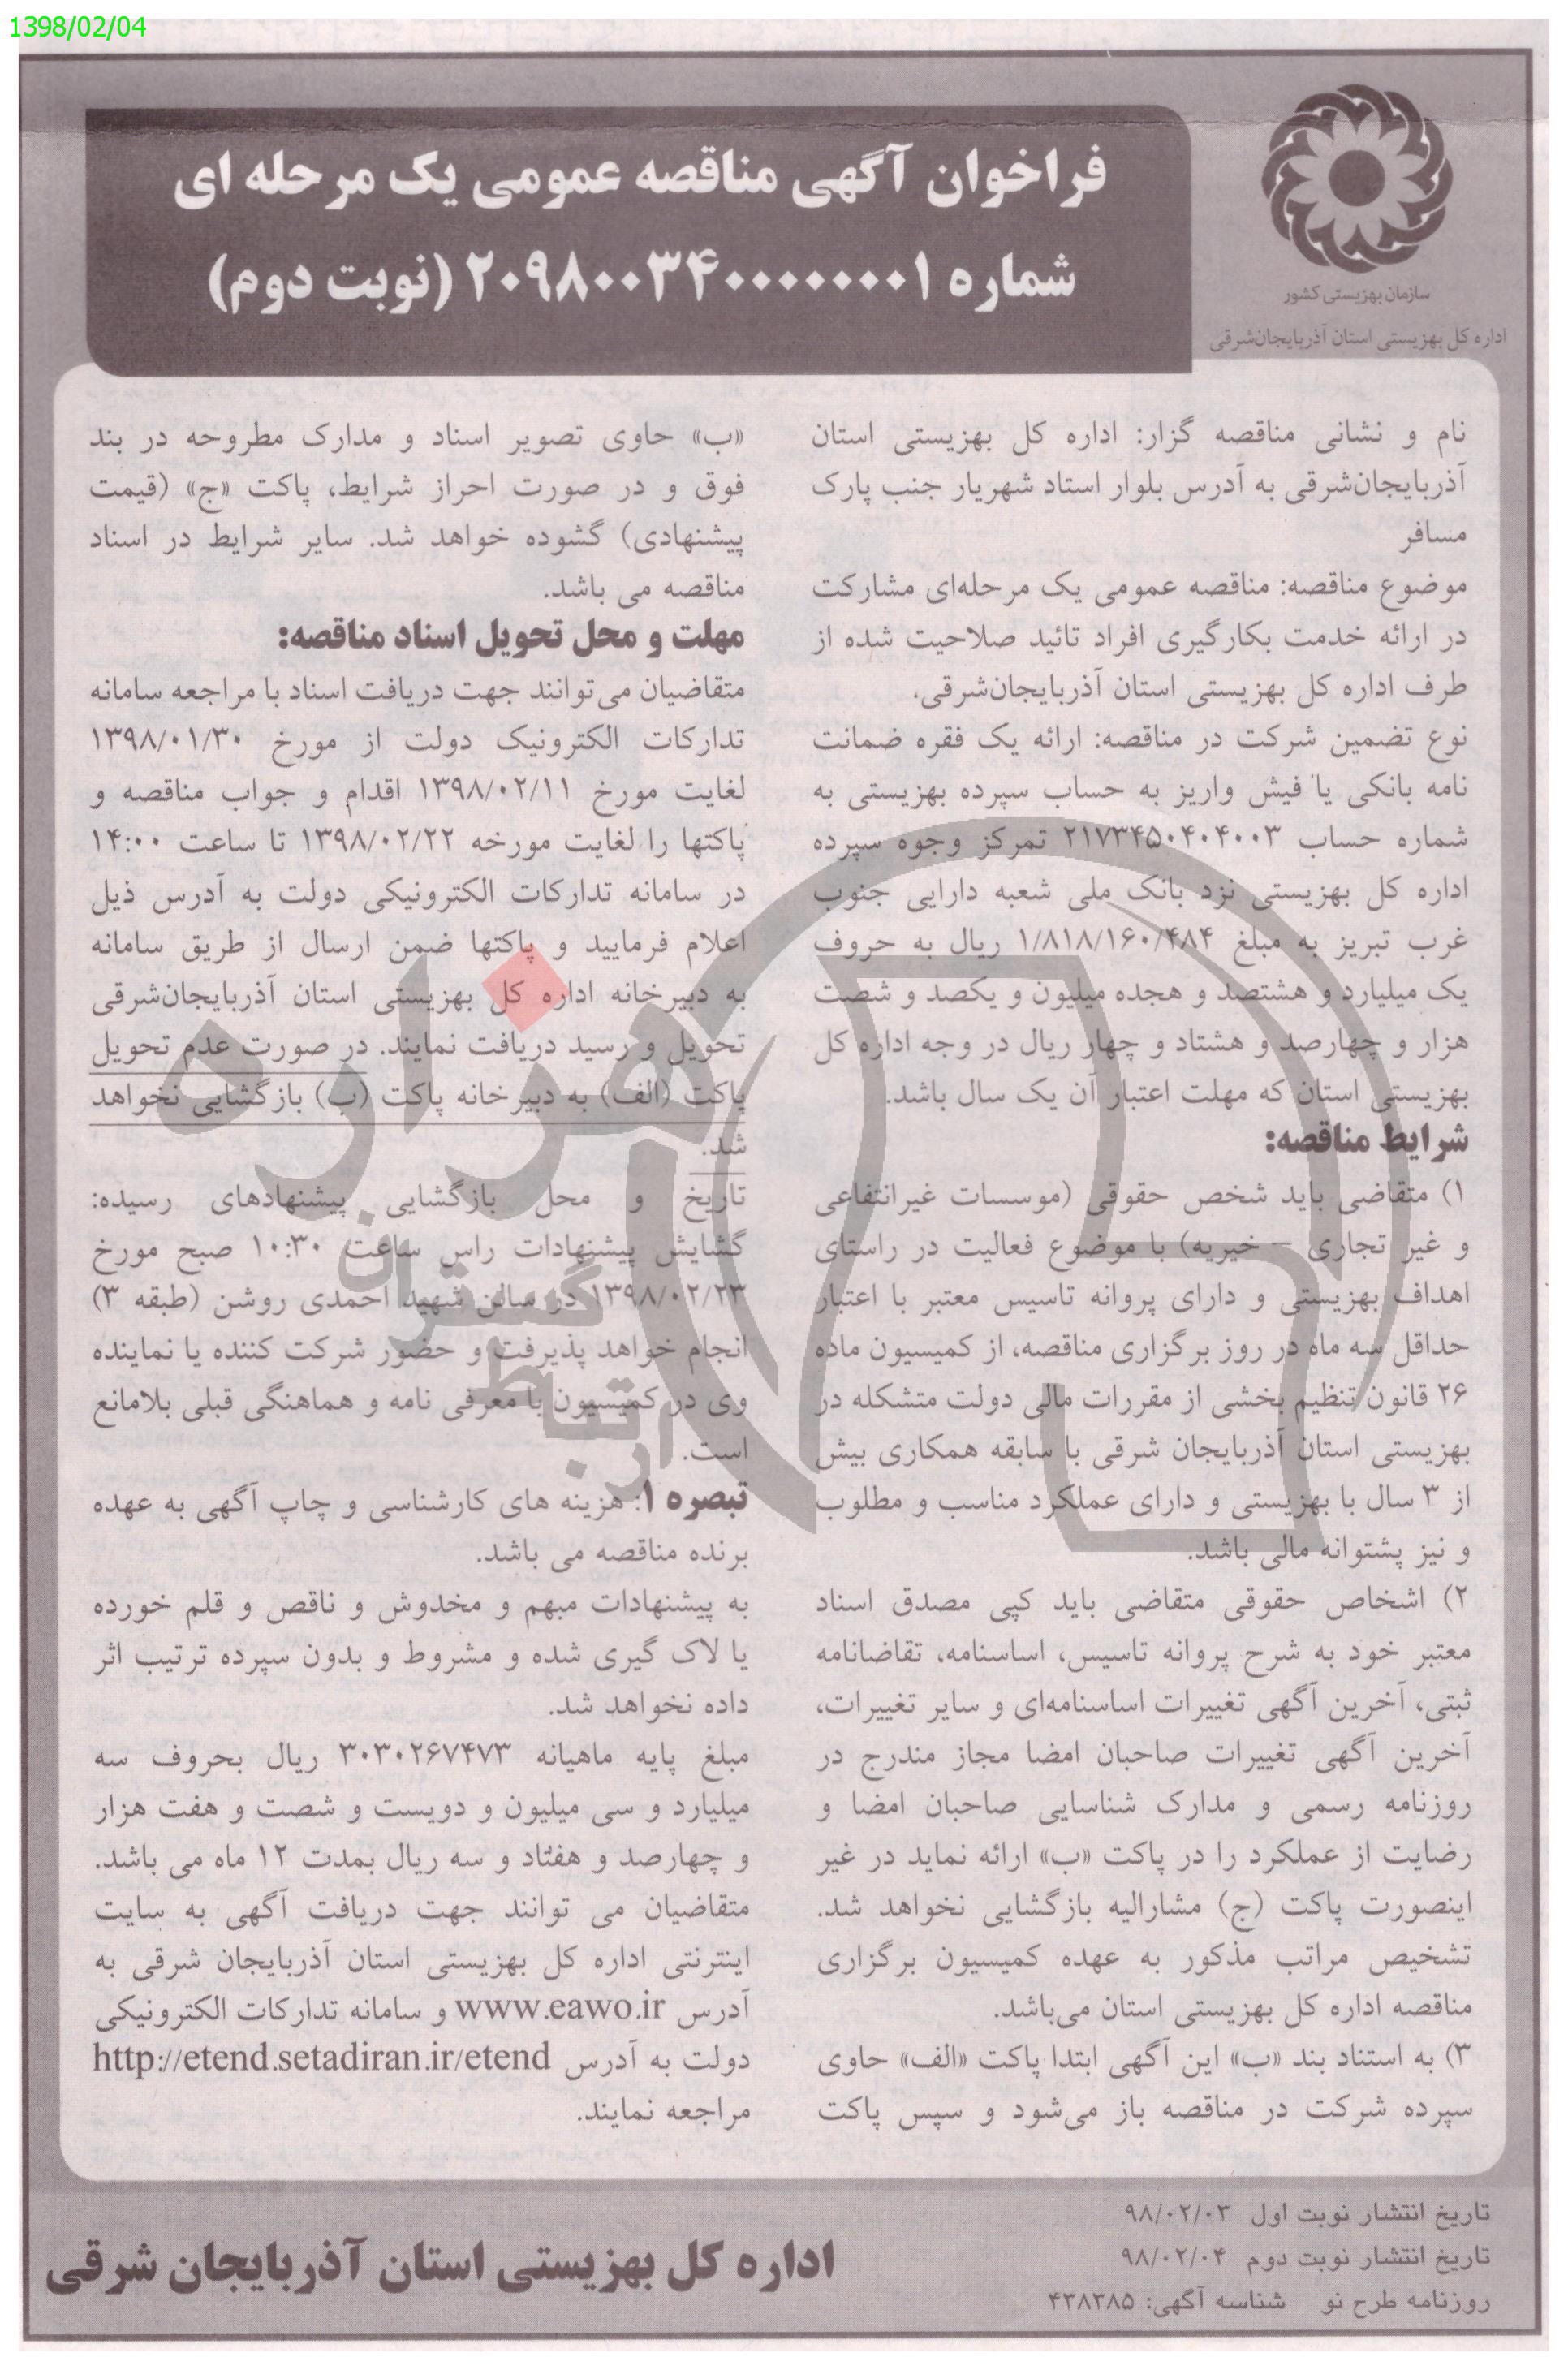 1398/02/04
سازمان بهزیستی کشور
اداره کل بهزیستی استان آذربایجان‌شرقی
فراخوان آگهی مناقصه عمومی یک مرحله ای
شماره ۲۰۹۸۰۰۳۴۰۰۰۰۰۰۰۱ (نوبت دوم)
نام و نشانی مناقصه گزار: اداره کل بهزیستی استان
آذربایجان‌شرقی به آدرس بلوار استاد شهریار جنب پارک
مسافر
موضوع مناقصه: مناقصه عمومی یک مرحله‌ای مشارکت
در ارائه خدمت بکارگیری افراد تائید صلاحیت شده از
طرف اداره کل بهزیستی استان آذربایجان‌شرقی.
نوع تضمین شرکت در مناقصه: ارائه یک فقره ضمانت
نامه بانکی یا فیش واریز به حساب سپرده بهزیستی به
شماره حساب ۲۱۷۳۴۵۰۴۰۴۰۰۳ تمرکز وجوه سپرده
اداره کل بهزیستی نزد بانک ملی شعبه دارایی جنوب
غرب تبریز به مبلغ ۱/۸۱۸/۱۶۰/۴۸۴ ریال به حروف
یک میلیارد و هشتصد و هجده میلیون و یکصد و شصت
هزار و چهارصد و هشتاد و چهار ریال در وجه اداره کل
بهزیستی استان که مهلت اعتبار آن یک سال باشد.
شرایط مناقصه:
۱) متقاضی باید شخص حقوقی (موسسات غیرانتفاعی
و غیر تجاری – خیریه) با موضوع فعالیت در راستای
اهداف بهزیستی و دارای پروانه تاسیس معتبر با اعتبار
حداقل سه ماه در روز برگزاری مناقصه، از کمیسیون ماده
۲۶ قانون تنظیم بخشی از مقررات مالی دولت متشکله در
بهزیستی استان آذربایجان شرقی با سابقه همکاری بیش
از ۳ سال با بهزیستی و دارای عملکرد مناسب و مطلوب
و نیز پشتوانه مالی باشد.
۲) اشخاص حقوقی متقاضی باید کپی مصدق اسناد
معتبر خود به شرح پروانه تاسیس، اساسنامه، تقاضانامه
ثبتی، آخرین آگهی تغییرات اساسنامه‌ای و سایر تغییرات،
آخرین آگهی تغییرات صاحبان امضا مجاز مندرج در
روزنامه رسمی و مدارک شناسایی صاحبان امضا و
رضایت از عملکرد را در پاکت «ب» ارائه نماید در غیر
اینصورت پاکت (ج) مشارالیه بازگشایی نخواهد شد.
تشخیص مراتب مذکور به عهده کمیسیون برگزاری
مناقصه اداره کل بهزیستی استان می‌باشد.
۳) به استناد بند «ب» این آگهی ابتدا پاکت «الف» حاوی
سپرده شرکت در مناقصه باز می‌شود و سپس پاکت
«ب» حاوی تصویر اسناد و مدارک مطروحه در بند
فوق و در صورت احراز شرایط، پاکت «ج» (قیمت
پیشنهادی) گشوده خواهد شد. سایر شرایط در اسناد
مناقصه می باشد.
مهلت و محل تحویل اسناد مناقصه:
متقاضیان می‌توانند جهت دریافت اسناد با مراجعه سامانه
تدارکات الکترونیک دولت از مورخ ۱۳۹۸/۰۱/۳۰
لغایت مورخ ۱۳۹۸/۰۲/۱۱ اقدام و جواب مناقصه و
پاکتها را لغایت مورخه ۱۳۹۸/۰۲/۲۲ تا ساعت ۱۴:۰۰
در سامانه تدارکات الکترونیکی دولت به آدرس ذیل
اعلام فرمایید و پاکتها ضمن ارسال از طریق سامانه
به دبیرخانه اداره کل بهزیستی استان آذربایجان‌شرقی
تحویل و رسید دریافت نمایند. در صورت عدم تحویل
پاکت (الف) به دبیرخانه پاکت (ب) بازگشایی نخواهد
شد.
تاریخ و محل بازگشایی پیشنهادهای رسیده:
گشایش پیشنهادات راس ساعت ۱۰:۳۰ صبح مورخ
۱۳۹۸/۰۲/۲۳ در سالن شهید احمدی روشن (طبقه ۳)
انجام خواهد پذیرفت و حضور شرکت کننده یا نماینده
وی در کمیسیون با معرفی نامه و هماهنگی قبلی بلامانع
است.
تبصره ۱: هزینه های کارشناسی و چاپ آگهی به عهده
برنده مناقصه می باشد.
به پیشنهادات مبهم و مخدوش و ناقص و قلم خورده
یا لاک گیری شده و مشروط و بدون سپرده ترتیب اثر
داده نخواهد شد.
مبلغ پایه ماهیانه ۳۰۳۰۲۶۷۴۷۳ ریال بحروف سه
میلیارد و سی میلیون و دویست و شصت و هفت هزار
و چهارصد و هفتاد و سه ریال بمدت ۱۲ ماه می باشد.
متقاضیان می توانند جهت دریافت آگهی به سایت
اینترنتی اداره کل بهزیستی استان آذربایجان شرقی به
آدرس www.eawo.ir و سامانه تدارکات الکترونیکی
دولت به آدرس http://etend.setadiran.ir/etend
مراجعه نمایند.
تاریخ انتشار نوبت اول ۹۸/۰۲/۰۳
تاریخ انتشار نوبت دوم ۹۸/۰۲/۰۴
روزنامه طرح نو شناسه آگهی: ۴۳۸۳۸۵
اداره کل بهزیستی استان آذربایجان شرقی
هزاره
گستران
ارتباط